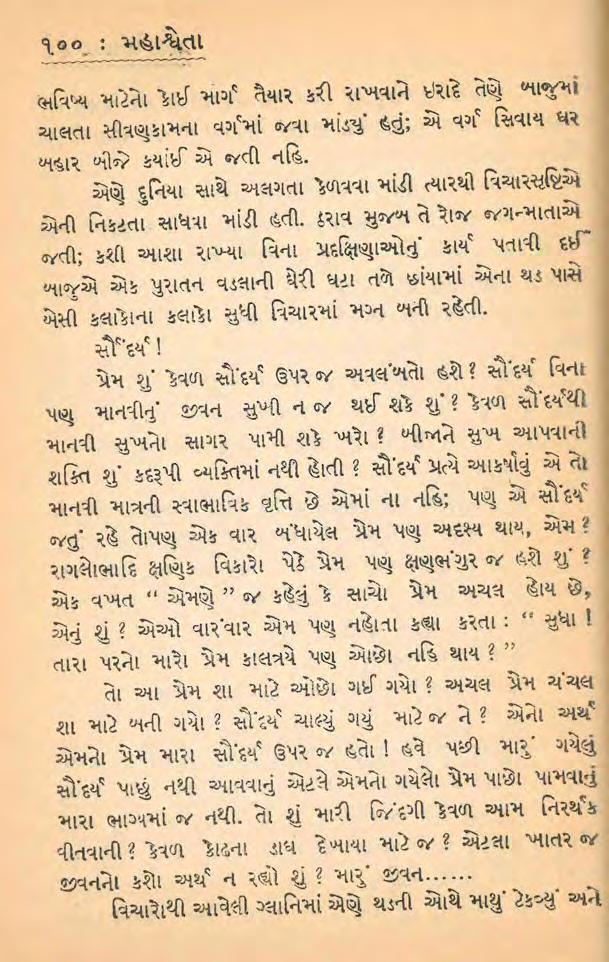 ૧૦૦ : મહાશ્વેતા
ભવિષ્ય માટેનો કોઈ માર્ગ તૈયાર કરી રાખવાને ઇરાદે તેણે બાજુમાં
ચાલતા સીવણકામના વર્ગમાં જવા માંડ્યું હતું; એ વર્ગ સિવાય ઘર
બહાર બીજે કયાંઈ એ જતી નહિ.
એણે દુનિયા સાથે અલગતા કેળવવા માંડી ત્યારથી વિચારસૃષ્ટિએ
એની નિકટતા સાધવા માંડી હતી. ઠરાવ મુજબ તે રોજ જગન્માતાએ
જતી; કશી આશા રાખ્યા વિના પ્રદક્ષિણાઓનું કાર્ય પતાવી દઈ
બાજુએ એક પુરાતન વડલાની ઘેરી ઘટા તળે છાંયામાં એના થડ પાસે
બેસી કલાકોના કલાકો સુધી વિચારમાં મગ્ન બની રહેતી.
સૌંદર્ય!
પ્રેમ શું કેવળ સૌંદર્ય ઉપર જ અવલંબતો હશે? સૌંદર્ય વિના
પણ માનવીનું જીવન સુખી ન જ થઈ શકે શું? કેવળ સૌંદર્યથી
માનવી સુખનો સાગર પામી શકે ખરો? બીજાને સુખ આપવાની
શક્તિ શું કદરૂપી વ્યક્તિમાં નથી હોતી? સૌંદર્ય પ્રત્યે આકર્ષાવું એ તો
માનવી માત્રની સ્વાભાવિક વૃત્તિ છે એમાં ના નહિ; પણ એ સૌંદર્ય
જતું રહે તોપણ એક વાર બંધાયેલ પ્રેમ પણ અદશ્ય થાય, એમ?
રાગલોભાદિ ક્ષણિક વિકારો પેઠે પ્રેમ પણ ક્ષણભંગુર જ હશે શું?
એક વખત “ એમણે ” જ કહેલું કે સાચો પ્રેમ અચલ હોય છે,
એનું શું? એઓ વારંવાર એમ પણ નહોતા કહ્યા કરતા: “ સુધા!
તારા પરનો મારો પ્રેમ કાલત્રયે પણ ઓછો નહિ થાય?”
તો આ પ્રેમ શા માટે ઓછો ગઈ ગયો? અચલ પ્રેમ ચંચલ
શા માટે બની ગયો? સૌંદર્ય ચાલ્યું ગયું માટે જ ને? એનો અર્થ
એમનો પ્રેમ મારા સૌંદર્ય ઉપર જ હતો! હવે પછી મારું ગયેલું
સૌંદર્ય પાછું નથી આવવાનું એટલે એમનો ગયેલો પ્રેમ પાછો પામવાનું
મારા ભાગ્યમાં જ નથી. તો શું મારી જિંદગી કેવળ આમ નિરર્થક
વીતવાની? કેવળ કોઢના ડાઘ દેખાયા માટે જ? એટલા ખાતર જ
જીવનનો કશો અર્થ ન રહ્યો શું? મારું જીવન......
વિચારોથી આવેલી ગ્લાનિમાં એણે થડની ઓથે માથું ટેકવ્યું અને